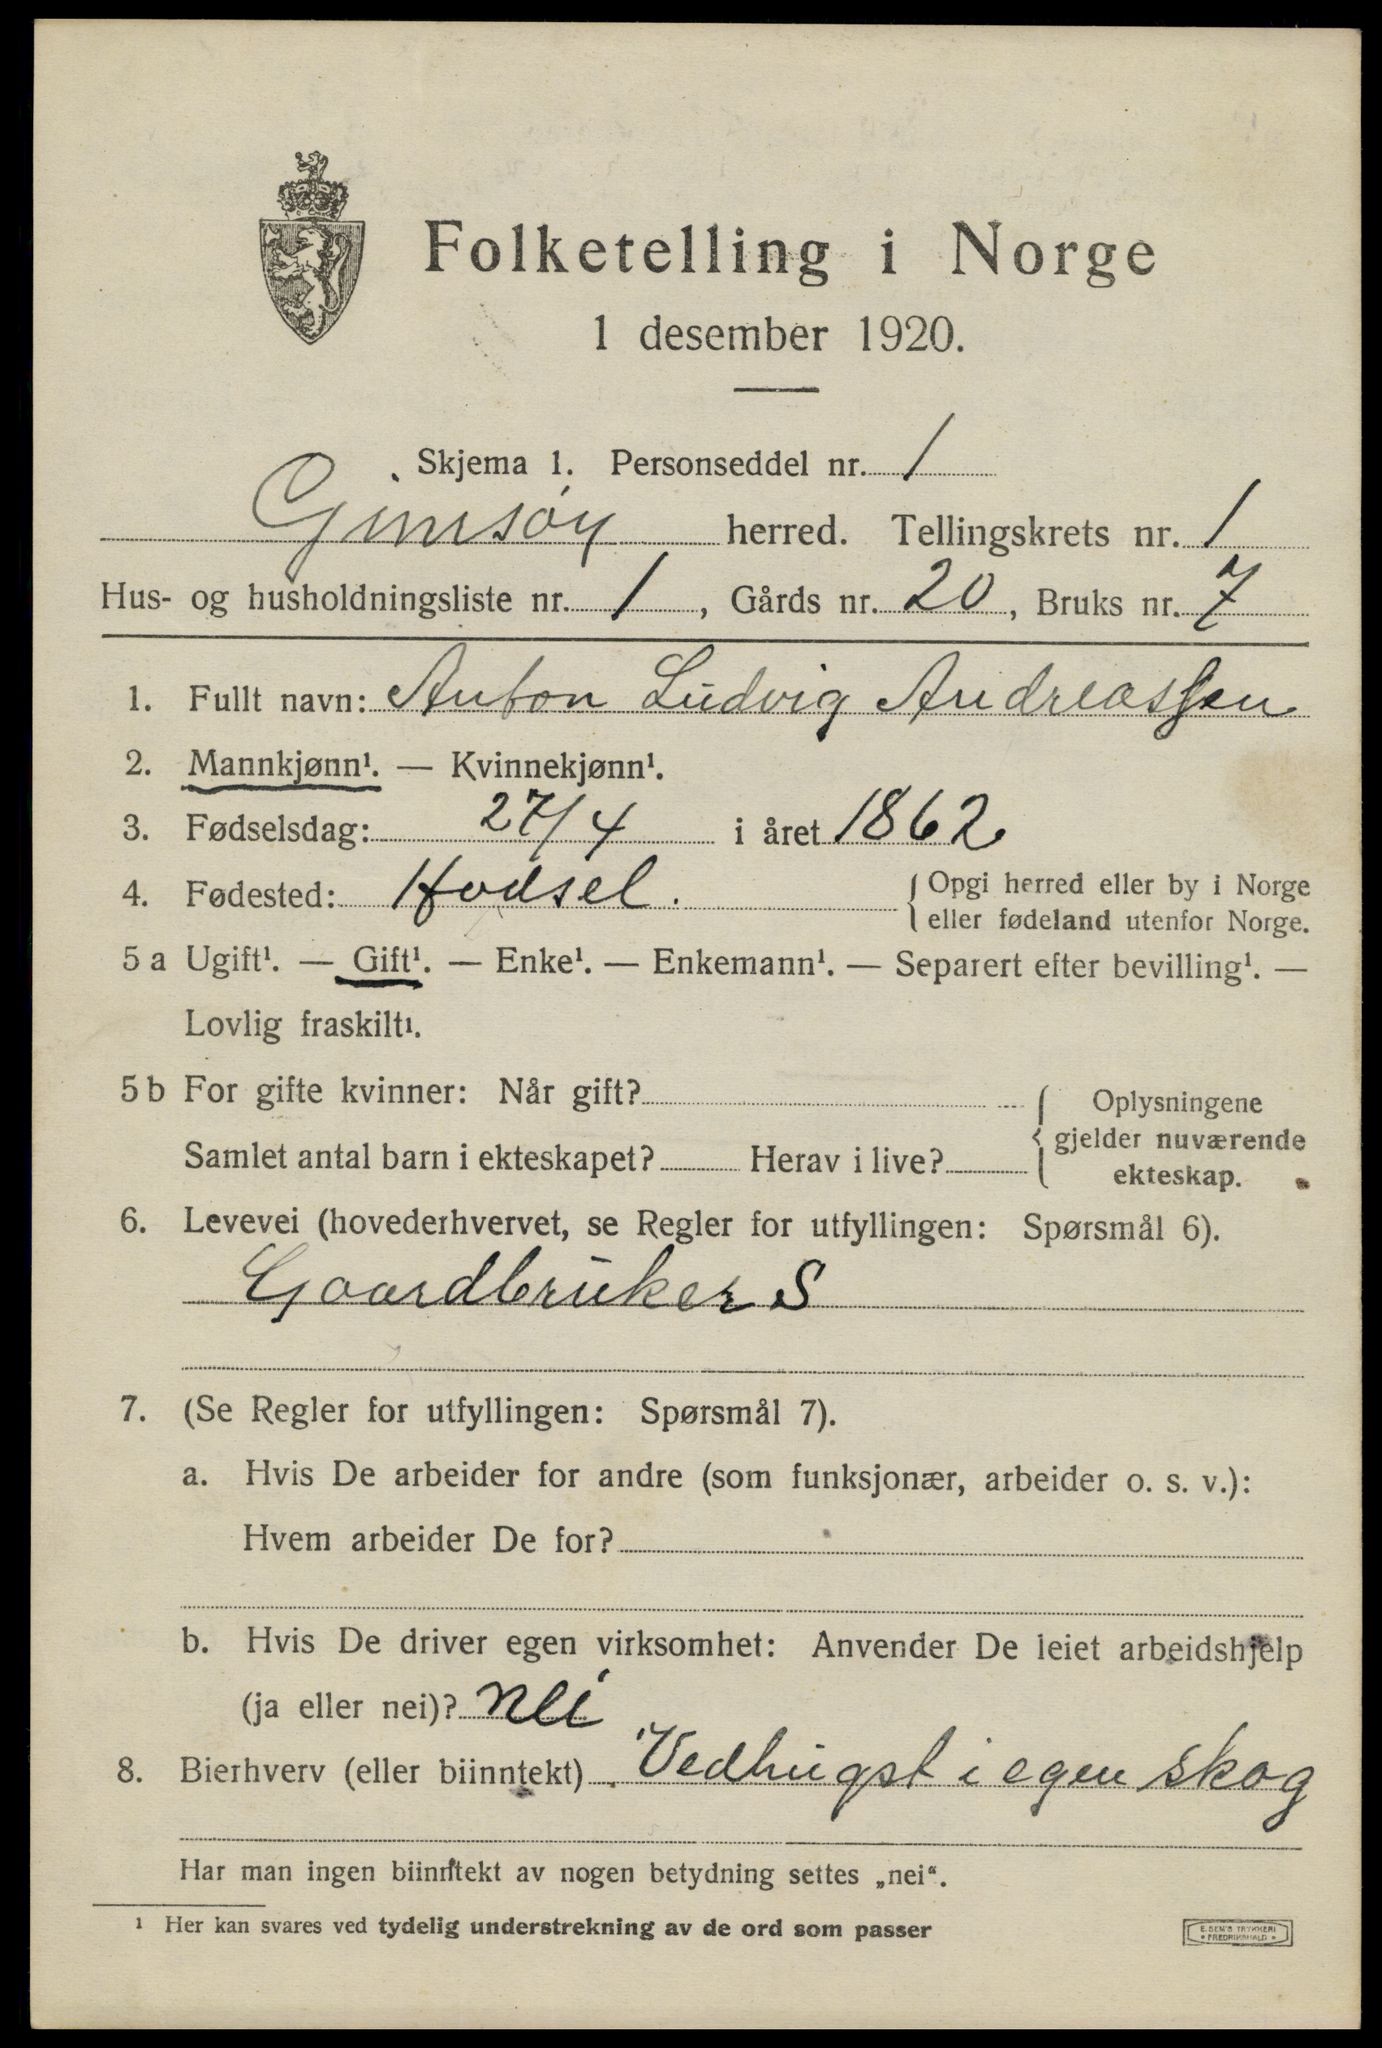 Folketelling i Norge
1 desember 1920.
Skjema 1. Personseddel nr. 1
Gimsøy herred. Tellingskrets nr. 1
Hus- og husholdningsliste nr. 1, Gårds nr. 20, Bruks nr. 7
1. Fullt navn: Anton Ludvig Andreassen
2. Mannkjønn¹. — Kvinnekjønn¹.
3. Fødselsdag: 27/4 i året 1862
4. Fødested: Hadsel. { Opgi herred eller by i Norge
eller fødeland utenfor Norge.
5 a Ugift¹. — Gift¹. — Enke¹. — Enkemann¹. — Separert efter bevilling¹. —
Lovlig fraskilt¹.
5 b For gifte kvinner: Når gift?
Samlet antal barn i ekteskapet? Herav i live?
{ Oplysningene
gjelder nuværende
ekteskap.
6. Levevei (hovederhvervet, se Regler for utfyllingen: Spørsmål 6).
Gaardbruker S
7. (Se Regler for utfyllingen: Spørsmål 7).
a. Hvis De arbeider for andre (som funksjonær, arbeider o. s. v.):
Hvem arbeider De for?
b. Hvis De driver egen virksomhet: Anvender De leiet arbeidshjelp
(ja eller nei)? nei
8. Bierhverv (eller biinntekt) Vedhugst i egen skog
Har man ingen biinntekt av nogen betydning settes „nei“.
¹ Her kan svares ved tydelig understrekning av de ord som passer
E. SEM'S TRYKKERI
• FREDRIKSHALD •